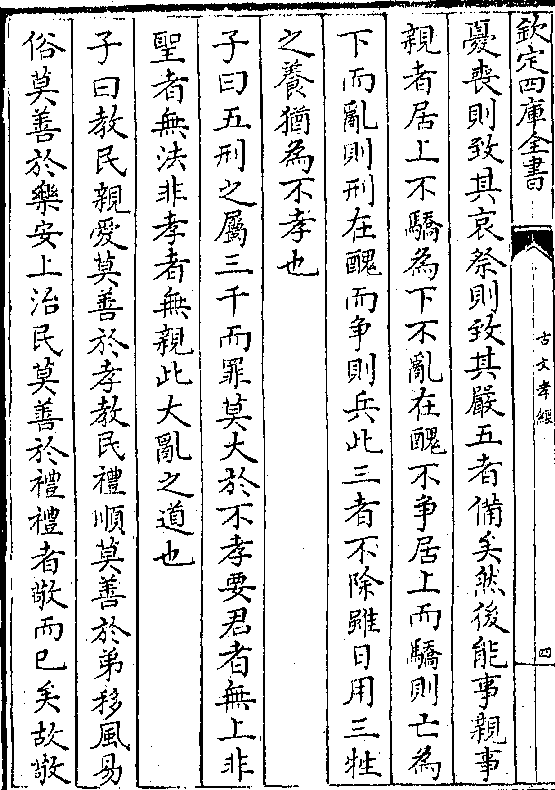 欽定四庫全書
古文孝經
四
憂喪則致其哀祭則致其嚴五者備矣然後能事親事
親者居上不驕為下不亂在醜不争居上而驕則亡為
下而亂則刑在醜而争則兵此三者不除雖日用三牲
之養猶為不孝也
子曰五刑之屬三千而罪莫大於不孝要君者無上非
聖者無法非孝者無親此大亂之道也
子曰教民親愛莫善於孝教民禮順莫善於弟移風易
俗莫善於樂安上治民莫善於禮禮者敬而已矣故敬